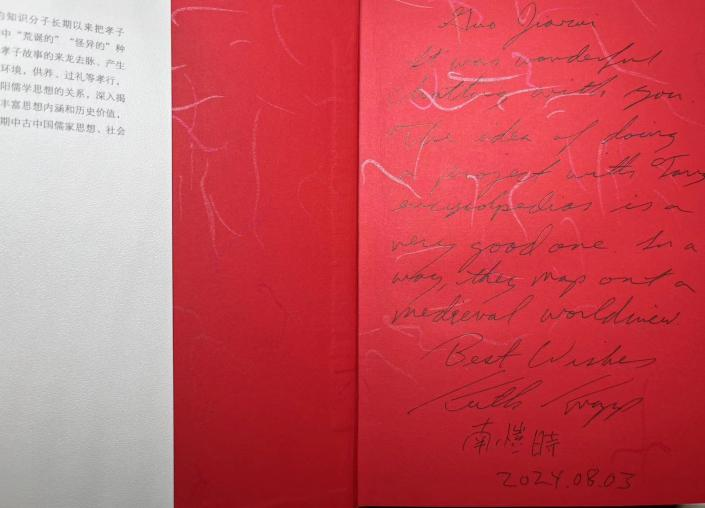 的知识分子长期以来把孝子
中“荒诞的”“怪异的”种
孝子故事的来龙去脉、产生
环境，供养、过礼等孝行，
阳儒学思想的关系，深入揭
丰富思想内涵和历史价值，
期中古中国儒家思想、社会
Guo Jiarui
It was wonderful
chatting with you.
The idea of doing
a project with Tang
encyclopedias is a
very good one. In a
way, they map out a
medieval worldview.
Best Wishes
Keith Knapp
南愷時
2024.08.03